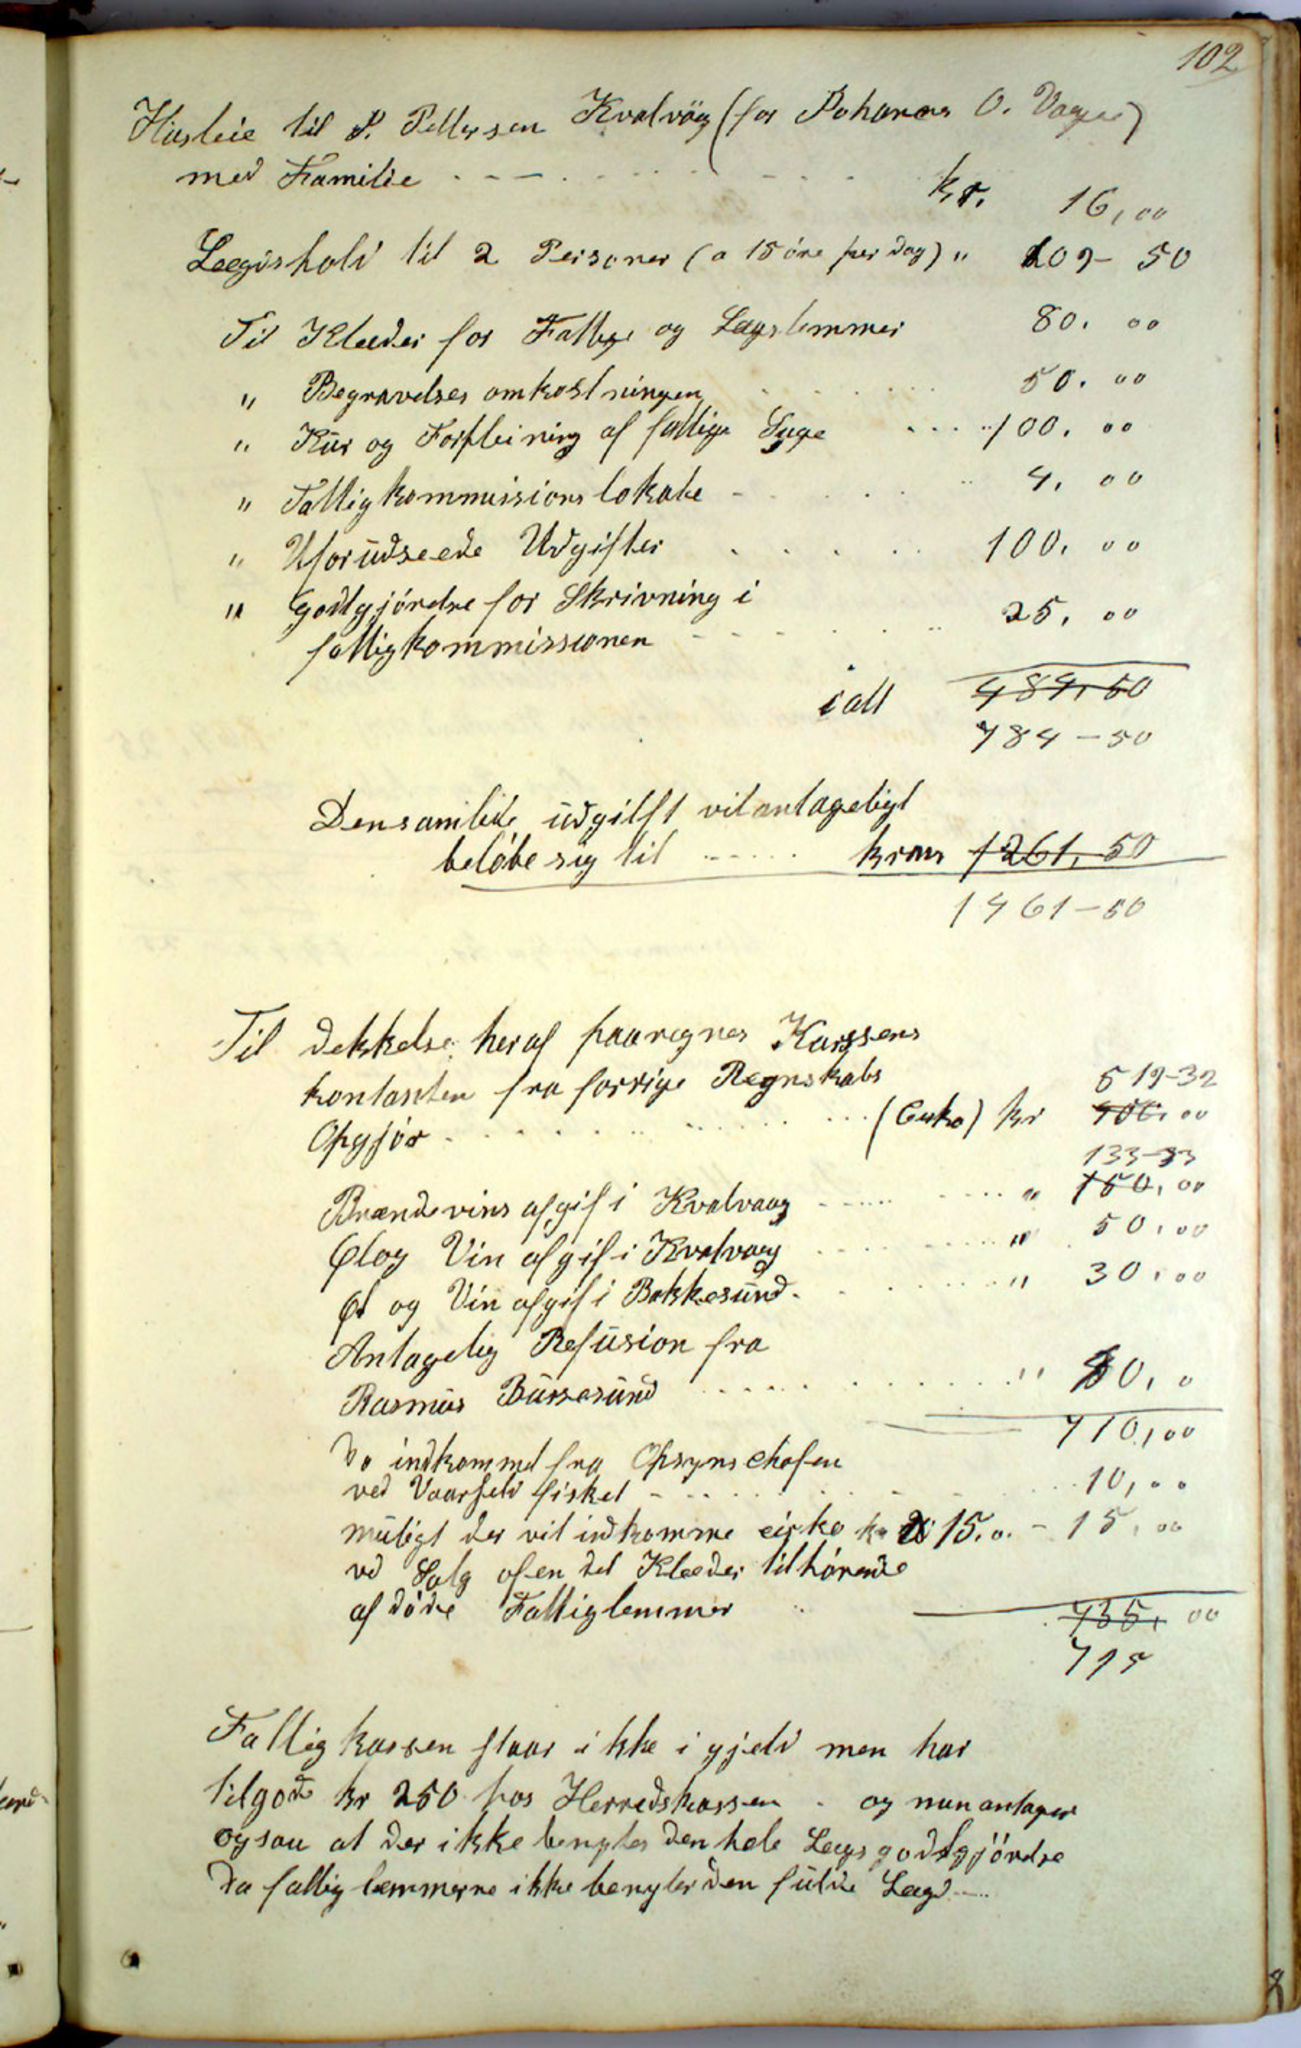 102
Husleie til P. Pettersen Kvalvåg (for Johannes O. Vaagen)
med Familie - - - - - kr. 16,00
Lægdshold til 2 Personer (a 15 öre per dag) " 109- 50
Til Klæder for Fattige og Lægslemmer 80. 00
" Begravelses omkostningen 50. 00
" Kur og Forpleining af fattige Syge 100. 00
" Fattigkommisions lokale - 4. 00
" Uforudseede Udgifter 100. 00
" godtgjörelse for Skrivning i
fattigkommissionen 25. 00
ialt 484,50
484-50
Den samlede udgift vil antageligt
belöbe sig til kroner 1261,50
1461-50
Til dekkelse heraf paaregnes Kassens
kontanten fra forrige Regnskabs
519-32
Opgjör (Cirka) kr 400.00
133-33
Brændevins afgif i Kvalvaag " 150,00
Øl og Vin afgif i Kvalvaag " 50,00
Øl og Vin afgif i Bakkesund " 30,00
Antagelig Refusion fra
Rasmus Bussesund " 80,0
710,00
Do indkommet fra Opsynschefen
ved Vaarsild fisket - 10,00
muligt der vil indkomme cirka kr 15.0. - 15,00
ved Salg af en del Klæder tilhörende
af döde Fattiglemmer 735,00
715
Fattigkassen staar ikke i gjeld men har
tilgode kr 250 hos Herredskassen . og man antager
ogsaa at der ikke benytes den hele Lægs godtgjörelse
da fattig lemmerne ikke benyter den fulde Lægd